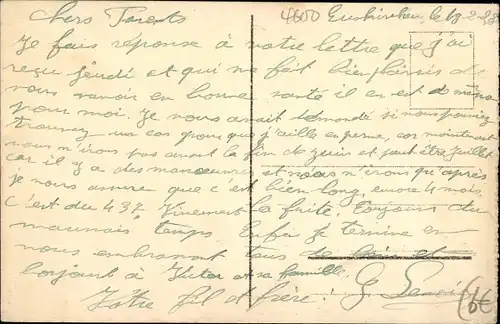 Chers Parents
4600 Euskirchen, le 13-2-
Je fais réponse à votre lettre que j'ai
reçu jeudi et qui me fait bien plaisir de
vous savoir en bonne santé il en est de même
pour moi. Je vous avait demandé si vous pourriez
trouver un cas pour que j'aille en perme, car maintenant
nous n'irons pas avant la fin de juin et peut être Juillet
car il y a des manoeuvres et nous n'irons qu'après
je vous assure que c'est bien long, encore 4 mois.
c'est du 43% Vivement la fuite. Toujours du
mauvais temps. Enfin je termine en
vous embrassant tous de loin et
toujours à Victor et sa famille.
Votre fil et frère: G.
6€